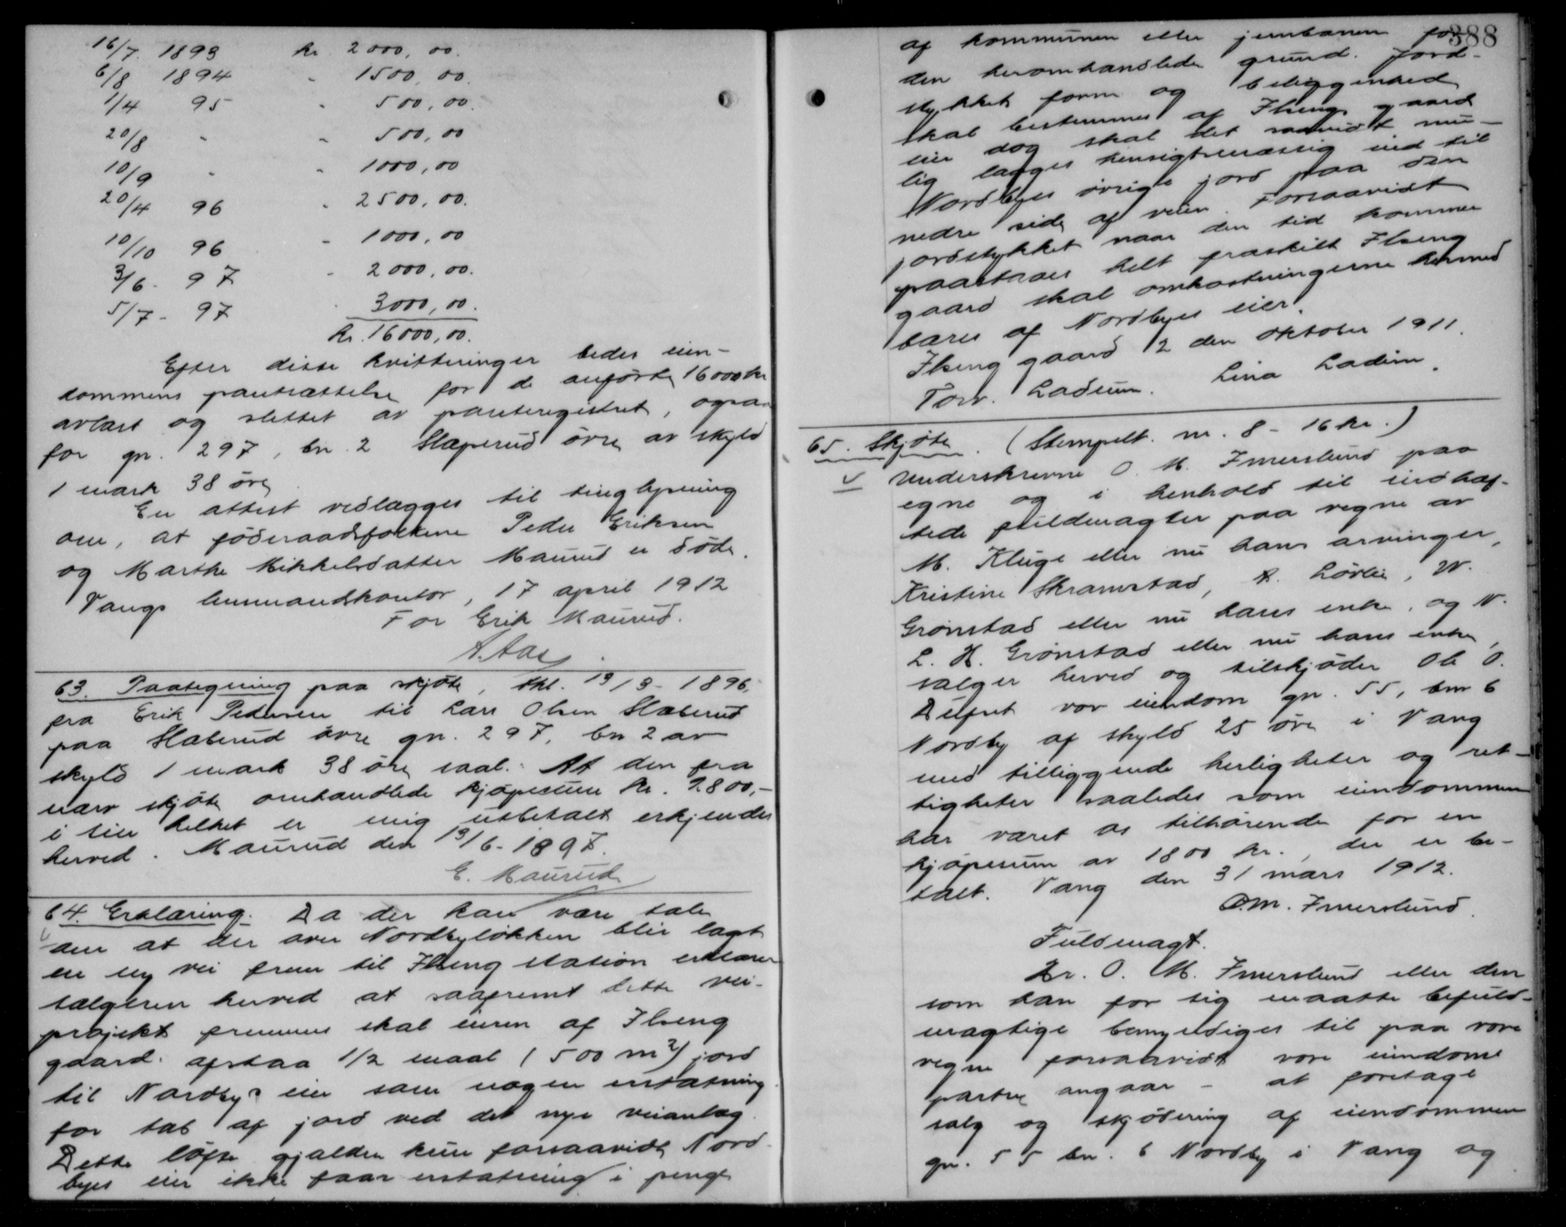 16/7. 1893 kr 2000,00.
6/8 1894 " 1500,00.
1/4 95 " 500,00.
20/8 " " 500,00
10/9 " " 1000,00
20/4 96 " 2500,00.
10/10 96 " 1000,00
3/6 - 97 " 2000,00.
5/7 - 97 " 3000,00.
kr. 16000,00.
Efter disse kvitteringer bedes eien-
dommens pantsættelse for de anførte 16000 kr
avlæst og slettet av panteregistret, ogsaa
for gn. 297, bn. 2 Slæperud øvre av skyld
1 mark 38 øre
En attest vedlægges til tinglysning
om, at føderaadsfolkene Peder Eriksen
og Marthe Mikkelsdatter Maurud er døde.
Vangs lensmandskontor, 17 april 1912
For Erik Maurud.
A. Aas
63. Paategning paa skjøte, thl. 19/3 - 1896,
fra Erik Pedersen til Lars Olsen Slæberud
paa Slæberud øvre gn. 297, bn 2 av
skyld 1 mark 38 øre saal.: At den fra
nærv skjøte omhandlede kjøpesum kr. 2800,-
i sin helhet er mig utbetalt erkjendes
herved. Maurud den 13/6 - 1897.
E. Maurud
64. Erklæring. Da der kan være tale
om at der over Nordbyløkken blir lagt
en ny vei frem til Ilseng station erklærer
sælgeren herved at saafremt dette vei-
projekt fremmes skal eieren af Ilseng
gaard afstaa 1/2 maal (500 m2) jord
til Nordbys eier som nogen erstatning
for tab af jord ved det nye veianlæg.
Dette løfte gjælder kun forsaavidt Nord-
byes eier ikke faar erstatning i penge
388
af kommunen eller jernbanen for
den heromhandlede grund. Jord-
stykket form og beliggenhed
skal bestemmes af Ilseng gaards
eier dog skal det saavidt mu-
lig lægges hensigtsmæssig ind til
Nordbyes øvrige jord paa den
nedre side af veien. Forsaavidt
jordstykket naar den tid kommer
paastaaes helt fraskilt Ilseng
gaard skal omkostningerne hermed
bæres af Nordbyes eier.
Ilseng gaard 2 den oktober 1911.
Torv. Ladeim. Lina Ladeim.
65. Skjøte. (Stempelt. m. 8 - 16 kr.)
Underskrevne O. M. Imerslund paa
egne og i henhold til indhæf-
tede fuldmagter paa vegne av
M. Kluge eller nu hans arvinger,
Kristine Skramstad, A. Løvlie, W.
Grønstad eller nu hans enke, og N.
L. H. Grønstad eller nu hans enke,
sælger herved og tilskjøder Ole O.
vor eiendom gn. 55, bnr 6
Nordby af skyld 25 øre i Vang
med tilliggende herligheter og ret-
tigheter saaledes som eiendommen
har været os tilhørende for en
kjøpesum av 1800 kr., der er be-
talt. Vang den 31 mars 1912.
O. M. Imerslund.
Fuldmagt.
Hr. O. M. Imerslund eller den
som han for sig maatte befuld-
mægtige bemyndiges til paa vore
vegne forsaavidt vore eiendoms
parter angaar - at foretage
salg og skjødering af eiendommen
gn. 55 bn. 6 Nordby i Vang og